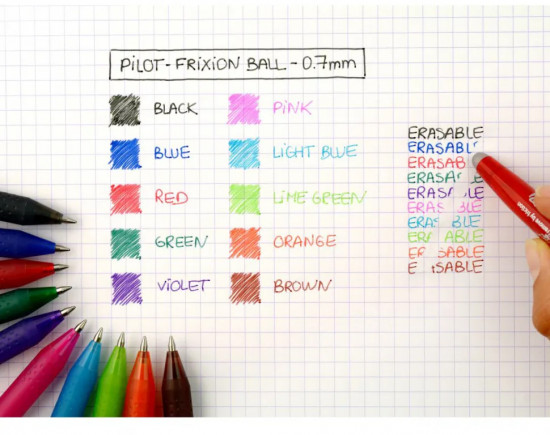 PILOT-FRIXION BALL-0.7mm
BLACK
BLUE
RED
GREEN
VIOLET
PINK
LIGHT BLUE
LIME GREEN
ORANGE
BROWN
ERASABLE
ERASABL
ERASAB
ERASA
ERAS BLE
ERAS BLE
ERAS BLE
ERA ABLE
ER SABLE
E SABLE